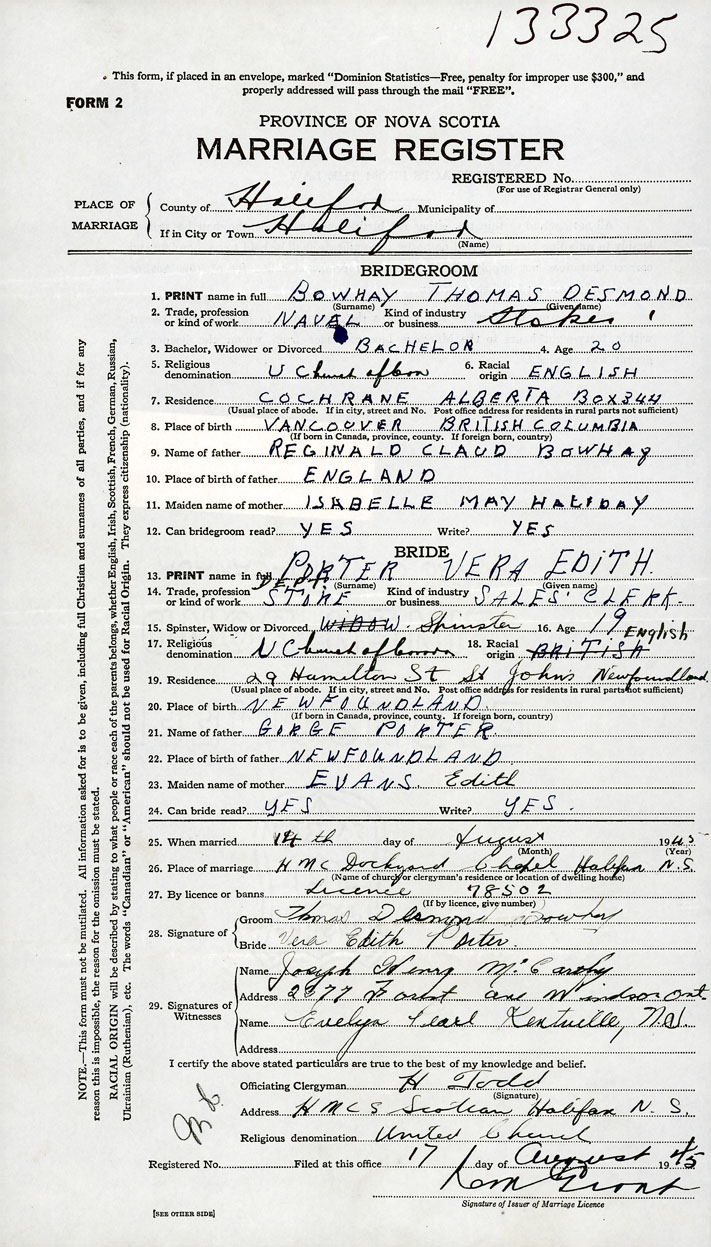 133325
This form, if placed in an envelope, marked "Dominion Statistics—Free, penalty for improper use $300," and
properly addressed will pass through the mail "FREE".
FORM 2
PROVINCE OF NOVA SCOTIA
MARRIAGE REGISTER
REGISTERED No.
(For use of Registrar General only)
PLACE OF MARRIAGE
County of Halifax Municipality of
If in City or Town Halifax
(Name)
BRIDEGROOM
1. PRINT name in full BOWHAY THOMAS DESMOND
(Surname) (Given name)
2. Trade, profession or kind of work NAVAL Kind of industry or business Stoker 1
3. Bachelor, Widower or Divorced BACHELOR 4. Age 20
5. Religious denomination U Church of Can 6. Racial origin ENGLISH
7. Residence COCHRANE ALBERTA BOX344
(Usual place of abode. If in city, street and No. Post office address for residents in rural parts not sufficient)
8. Place of birth VANCOUVER BRITISH COLUMBIA
(If born in Canada, province, county. If foreign born, country)
9. Name of father REGINALD CLAUD BOWHAY
10. Place of birth of father ENGLAND
11. Maiden name of mother ISABELLE MAY HALIDAY
12. Can bridegroom read? YES Write? YES
BRIDE
13. PRINT name in full PORTER VERA EDITH.
(Surname) (Given name)
14. Trade, profession or kind of work DEPT. STORE Kind of industry or business SALES CLERK.
15. Spinster, Widow or Divorced WIDOW. Spinster 16. Age 19
17. Religious denomination U Church of Canada 18. Racial origin BRITISH English
19. Residence 29 Hamilton St St Johns Newfoundland
(Usual place of abode. If in city, street and No. Post office address for residents in rural parts not sufficient)
20. Place of birth NEWFOUNDLAND
(If born in Canada, province, county. If foreign born, country)
21. Name of father GORGE PORTER
22. Place of birth of father NEWFOUNDLAND
23. Maiden name of mother EVANS Edith
24. Can bride read? YES Write? YES.
25. When married 14th day of August 1945
(Month) (Year)
26. Place of marriage HMC Dockyard Chapel Halifax N.S.
(Name of church or clergyman's residence or location of dwelling house)
27. By licence or banns Licence 78502
(If by licence, give number)
28. Signature of
Groom Thomas Desmond Bowhay
Bride Vera Edith Porter.
29. Signatures of Witnesses
Name Joseph Henry McCarthy
Address 2377 Forest ave Windsor Ont.
Name Evelyn Pearl Kentville, N.S.
Address
I certify the above stated particulars are true to the best of my knowledge and belief.
Officiating Clergyman H Todd
(Signature)
Address HMCS Scotian Halifax N.S.
Religious denomination United Church
Registered No. Filed at this office 17 day of August 1945
Signature of Issuer of Marriage Licence
[SEE OTHER SIDE]
NOTE.—This form must not be mutilated. All information asked for is to be given, including full Christian and surnames of all parties, and if for any
reason this is impossible, the reason for the omission must be stated.
RACIAL ORIGIN will be described by stating to what people or race each of the parents belongs, whether English, Irish, Scottish, French, German, Russian,
Ukrainian (Ruthenian), etc. The words "Canadian" or "American" should not be used for Racial Origin. They express citizenship (nationality).